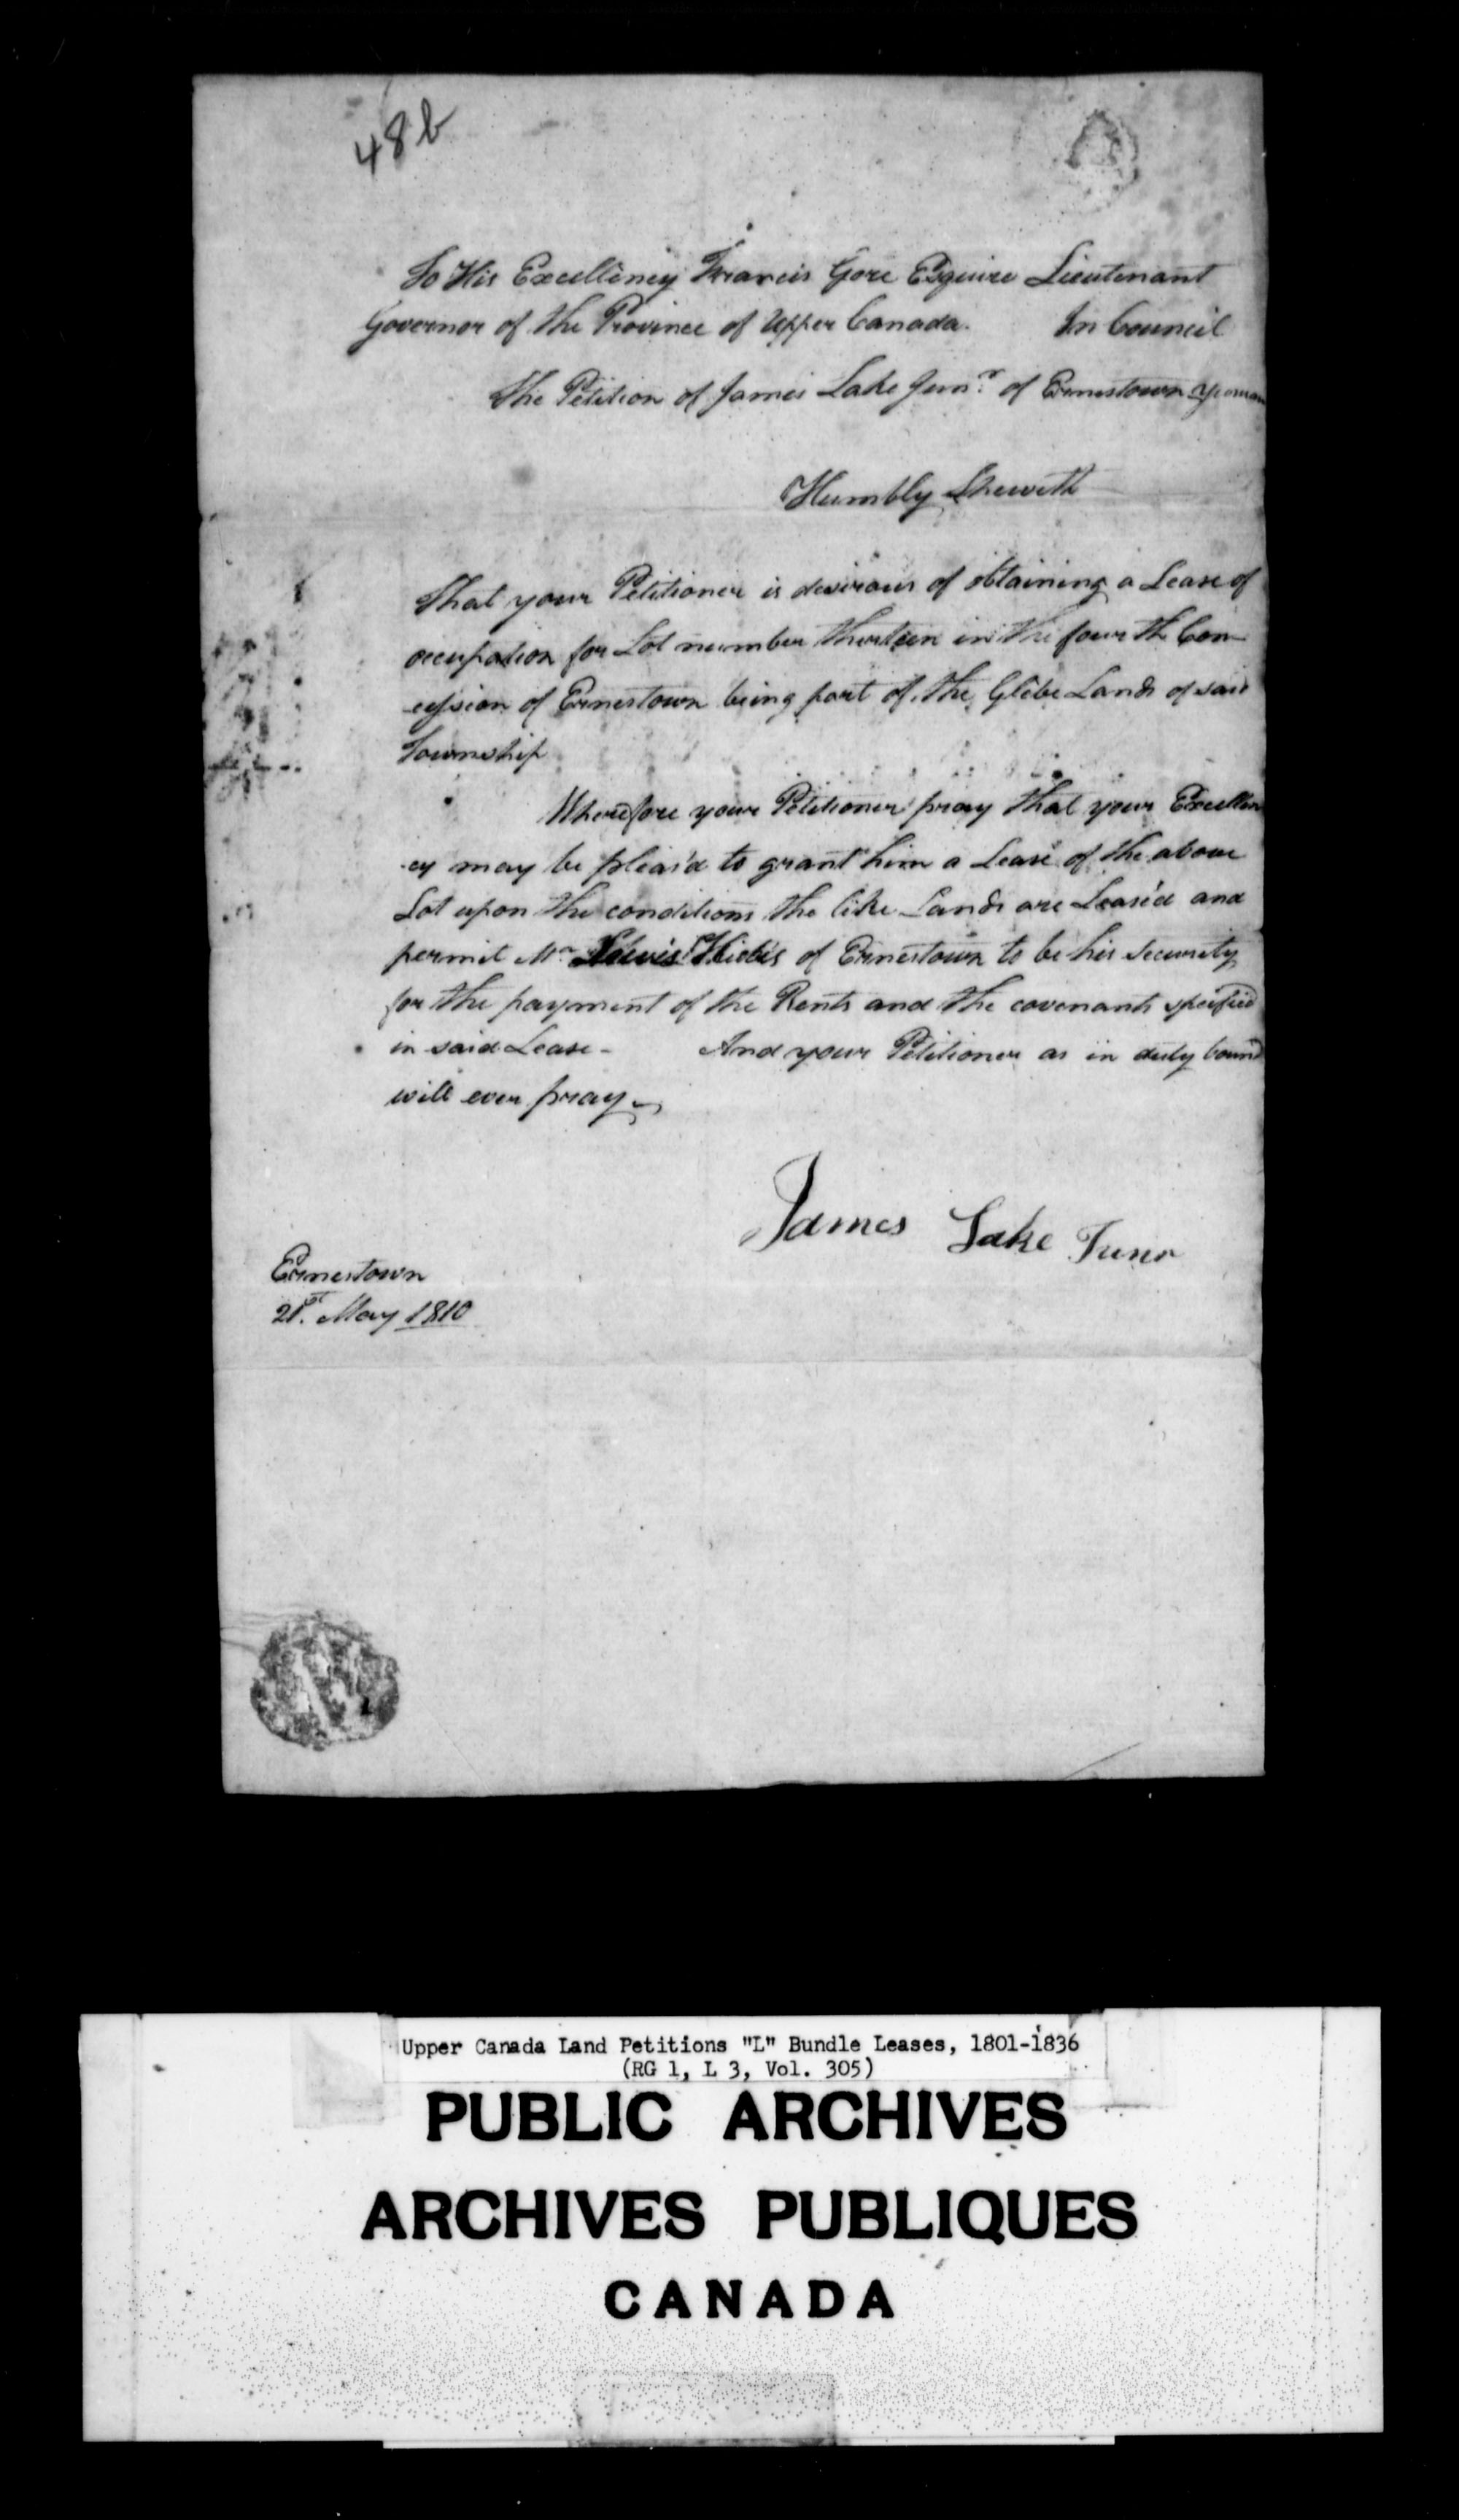 48b
To His Excellency Francis Gore Esquire Lieutenant
Governor of the Province of Upper Canada. In Council
The Petition of James Lake Junr. of Ernestown Yeoman
Humbly Sheweth
That your Petitioner is desirous of obtaining a Lease of
occupation for Lot number thirteen in the fourth Con
cession of Ernestown being part of the Glebe Lands of said
Township
Wherefore your Petitioner pray that your Excellen
-cy may be pleas'd to grant him a Lease of the above
Lot upon the conditions the like Lands are Leas'd and
permit Mr of Ernestown to be his Security
for the payment of the Rents and the covenants specified
in said Lease - And your Petitioner as in duty bound
will ever pray
James Lake Junr
Ernestown
21st. May 1810
Upper Canada Land Petitions "L" Bundle Leases, 1801-1836
(RG 1, L 3, Vol. 305)
PUBLIC ARCHIVES
ARCHIVES PUBLIQUES
CANADA